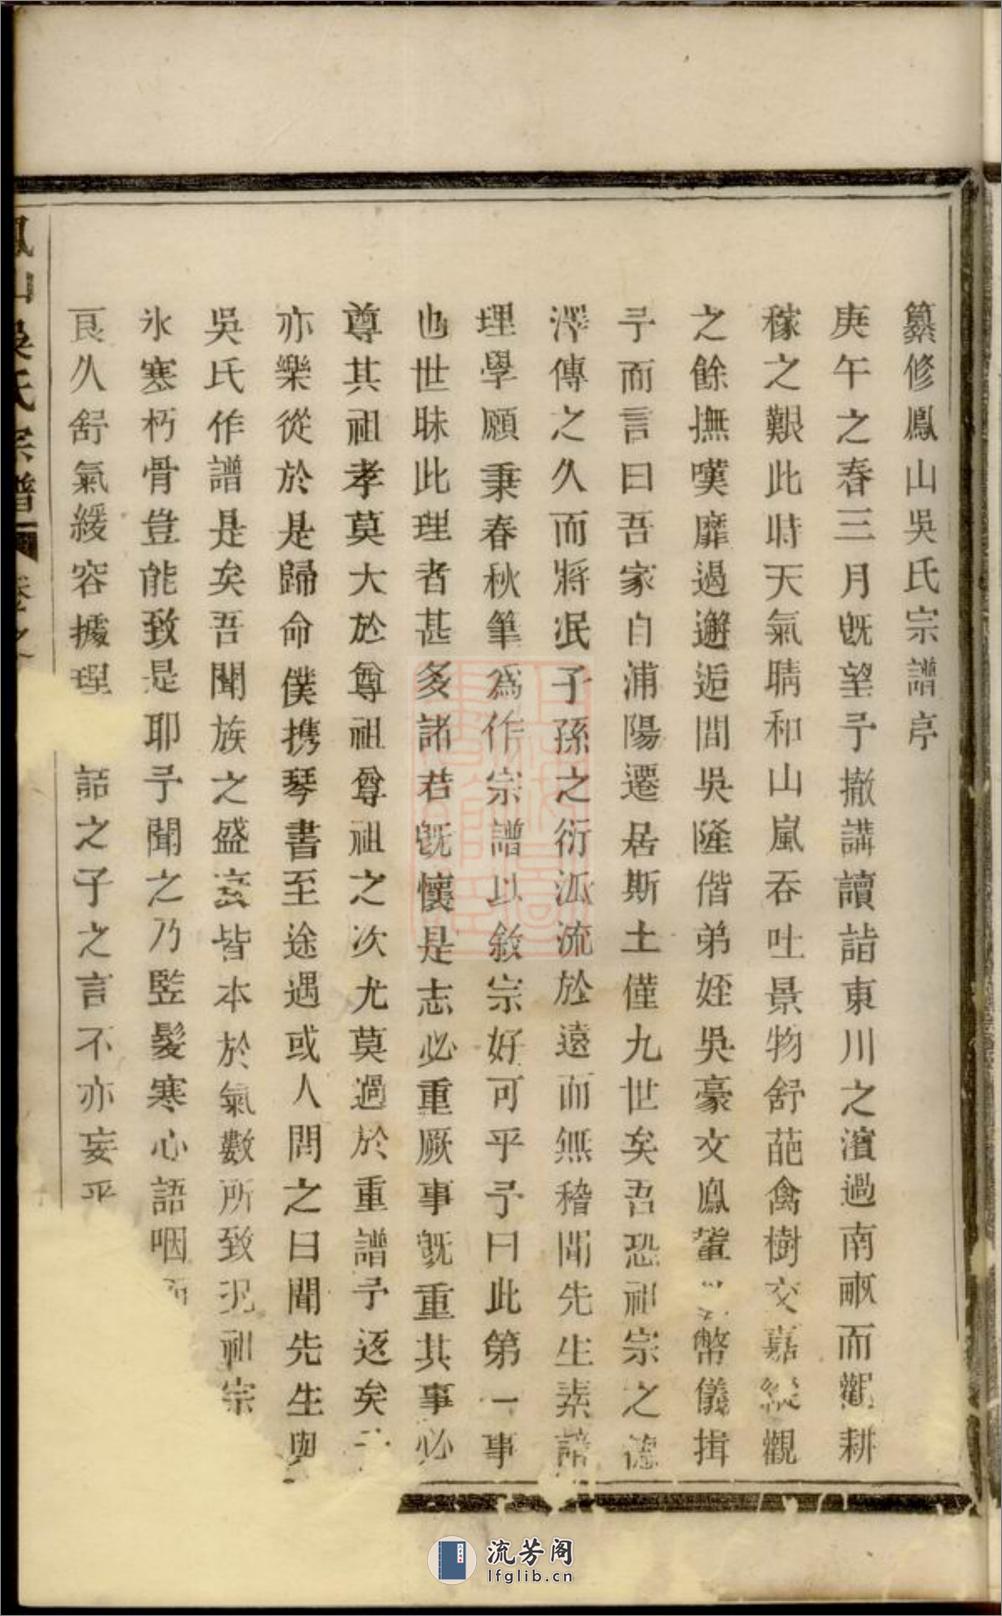 纂修鳳山吳氏宗譜序
庚午之春三月旣望予撤講讀詣東川之濱過南畝而觀耕
稼之艱此時天氣晴和山嵐吞吐景物舒葩禽樹交嘉縱觀
之餘撫嘆靡過邂逅間吳隆偕弟姪吳豪文鳳輩幣儀揖
予而言曰吾家自浦陽遷居斯土僅九世矣吾恐祖宗之德
澤傳之久而將泯子孫之衍派流於遠而無稽聞先生素諳
理學願秉春秋筆爲作宗譜以敘宗好可乎予曰此第一事
也世昧此理者甚多諸君旣懷是志必重厥事旣重其事必
尊其祖孝莫大於尊祖尊祖之次尤莫過於重譜予返矣
亦樂從於是歸命僕携琴書至途遇或人問之曰聞先生與
吳氏作譜是矣吾聞族之盛衰皆本於氣數所致况祖宗
氷寒朽骨豈能致是耶予聞之乃監髮寒心語咽
良久舒氣緩容據理詰之子之言不亦妄乎
鳳山吳氏宗譜 卷之
流芳阁
lfglib.cn